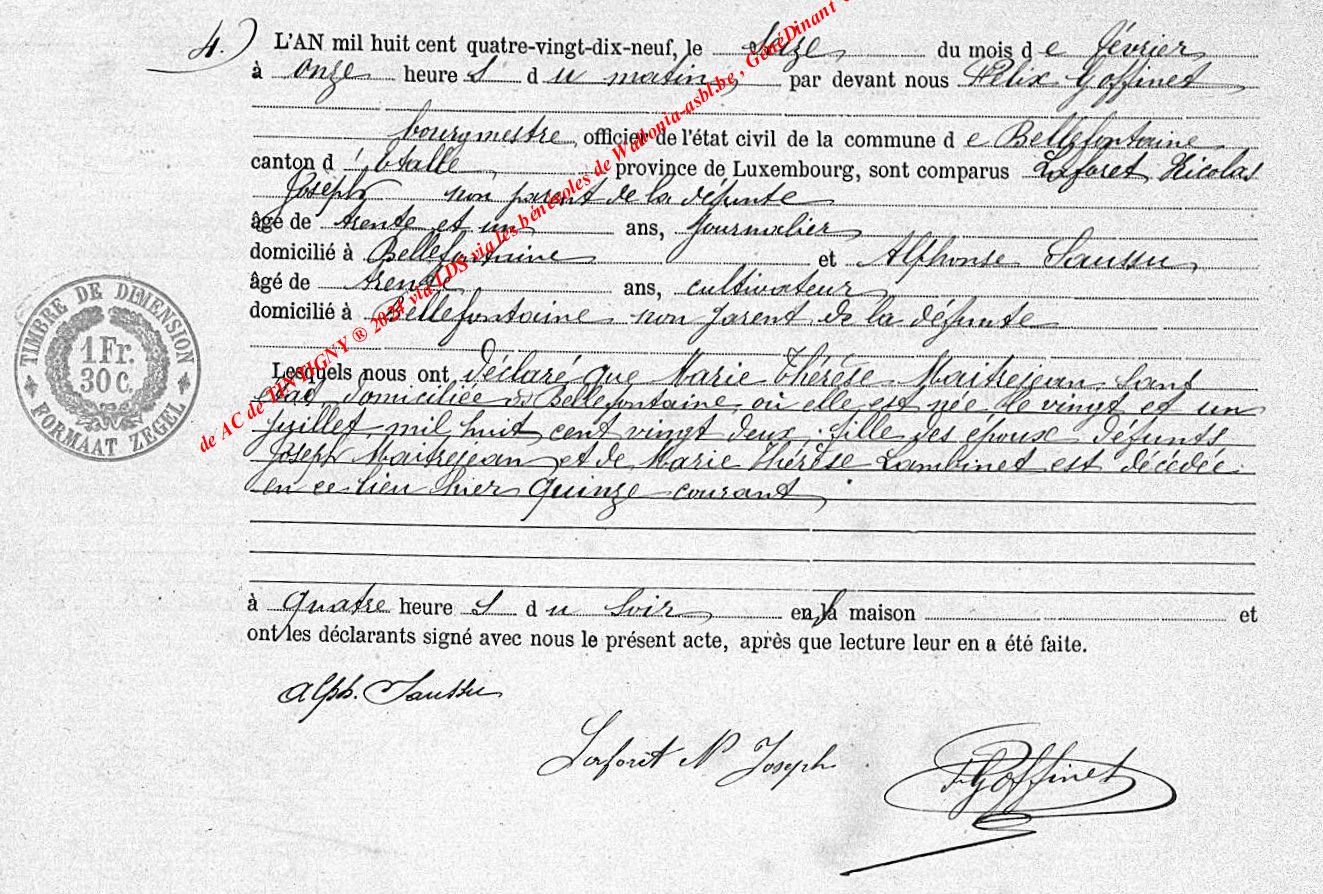 4.) L'AN mil huit cent quatre-vingt-dix-neuf, le Seize du mois de février
à onze heures du matin, par devant nous Félix Goffinet
bourgmestre, officier de l'état civil de la commune de Bellefontaine
canton d'Etalle, province de Luxembourg, sont comparus Laforet, Nicolas
Joseph non parent de la défunte
âgé de trente et un ans, journalier
domicilié à Bellefontaine et Alphonse Saussu,
âgé de trente ans, cultivateur
domicilié à Bellefontaine non parent de la défunte
Lesquels nous ont déclaré que Marie Thérèse Maitrejean sans
état, domiciliée à Bellefontaine, où elle est née le vingt et un
juillet mil huit cent vingt deux, fille des époux défunts
Joseph Maitrejean et de Marie Thérèse Lambinet est décédée
en ce lieu hier quinze courant,
à quatre heures du soir en sa maison et
ont les déclarants signé avec nous le présent acte, après que lecture leur en a été faite.
Alph. Saussu
Laforêt N Joseph
F Goffinet
TIMBRE DE DIMENSION
1 Fr.
30 C.
FORMAAT ZEGEL
de AC de TINTIGNY ® 2024 via LDS via les bénévoles de Wallonia-asbl.be , GénéDinant